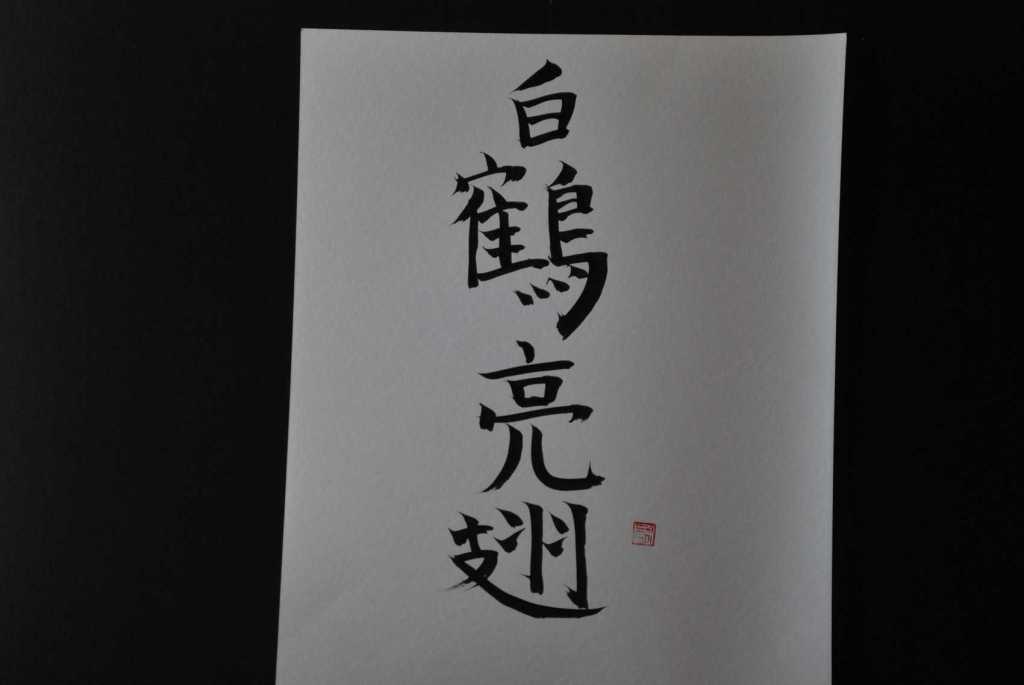 白鶴亮翅